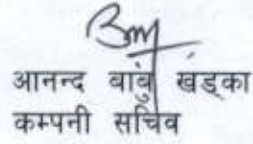 आनन्द बाबु खड्का
कम्पनी सचिव